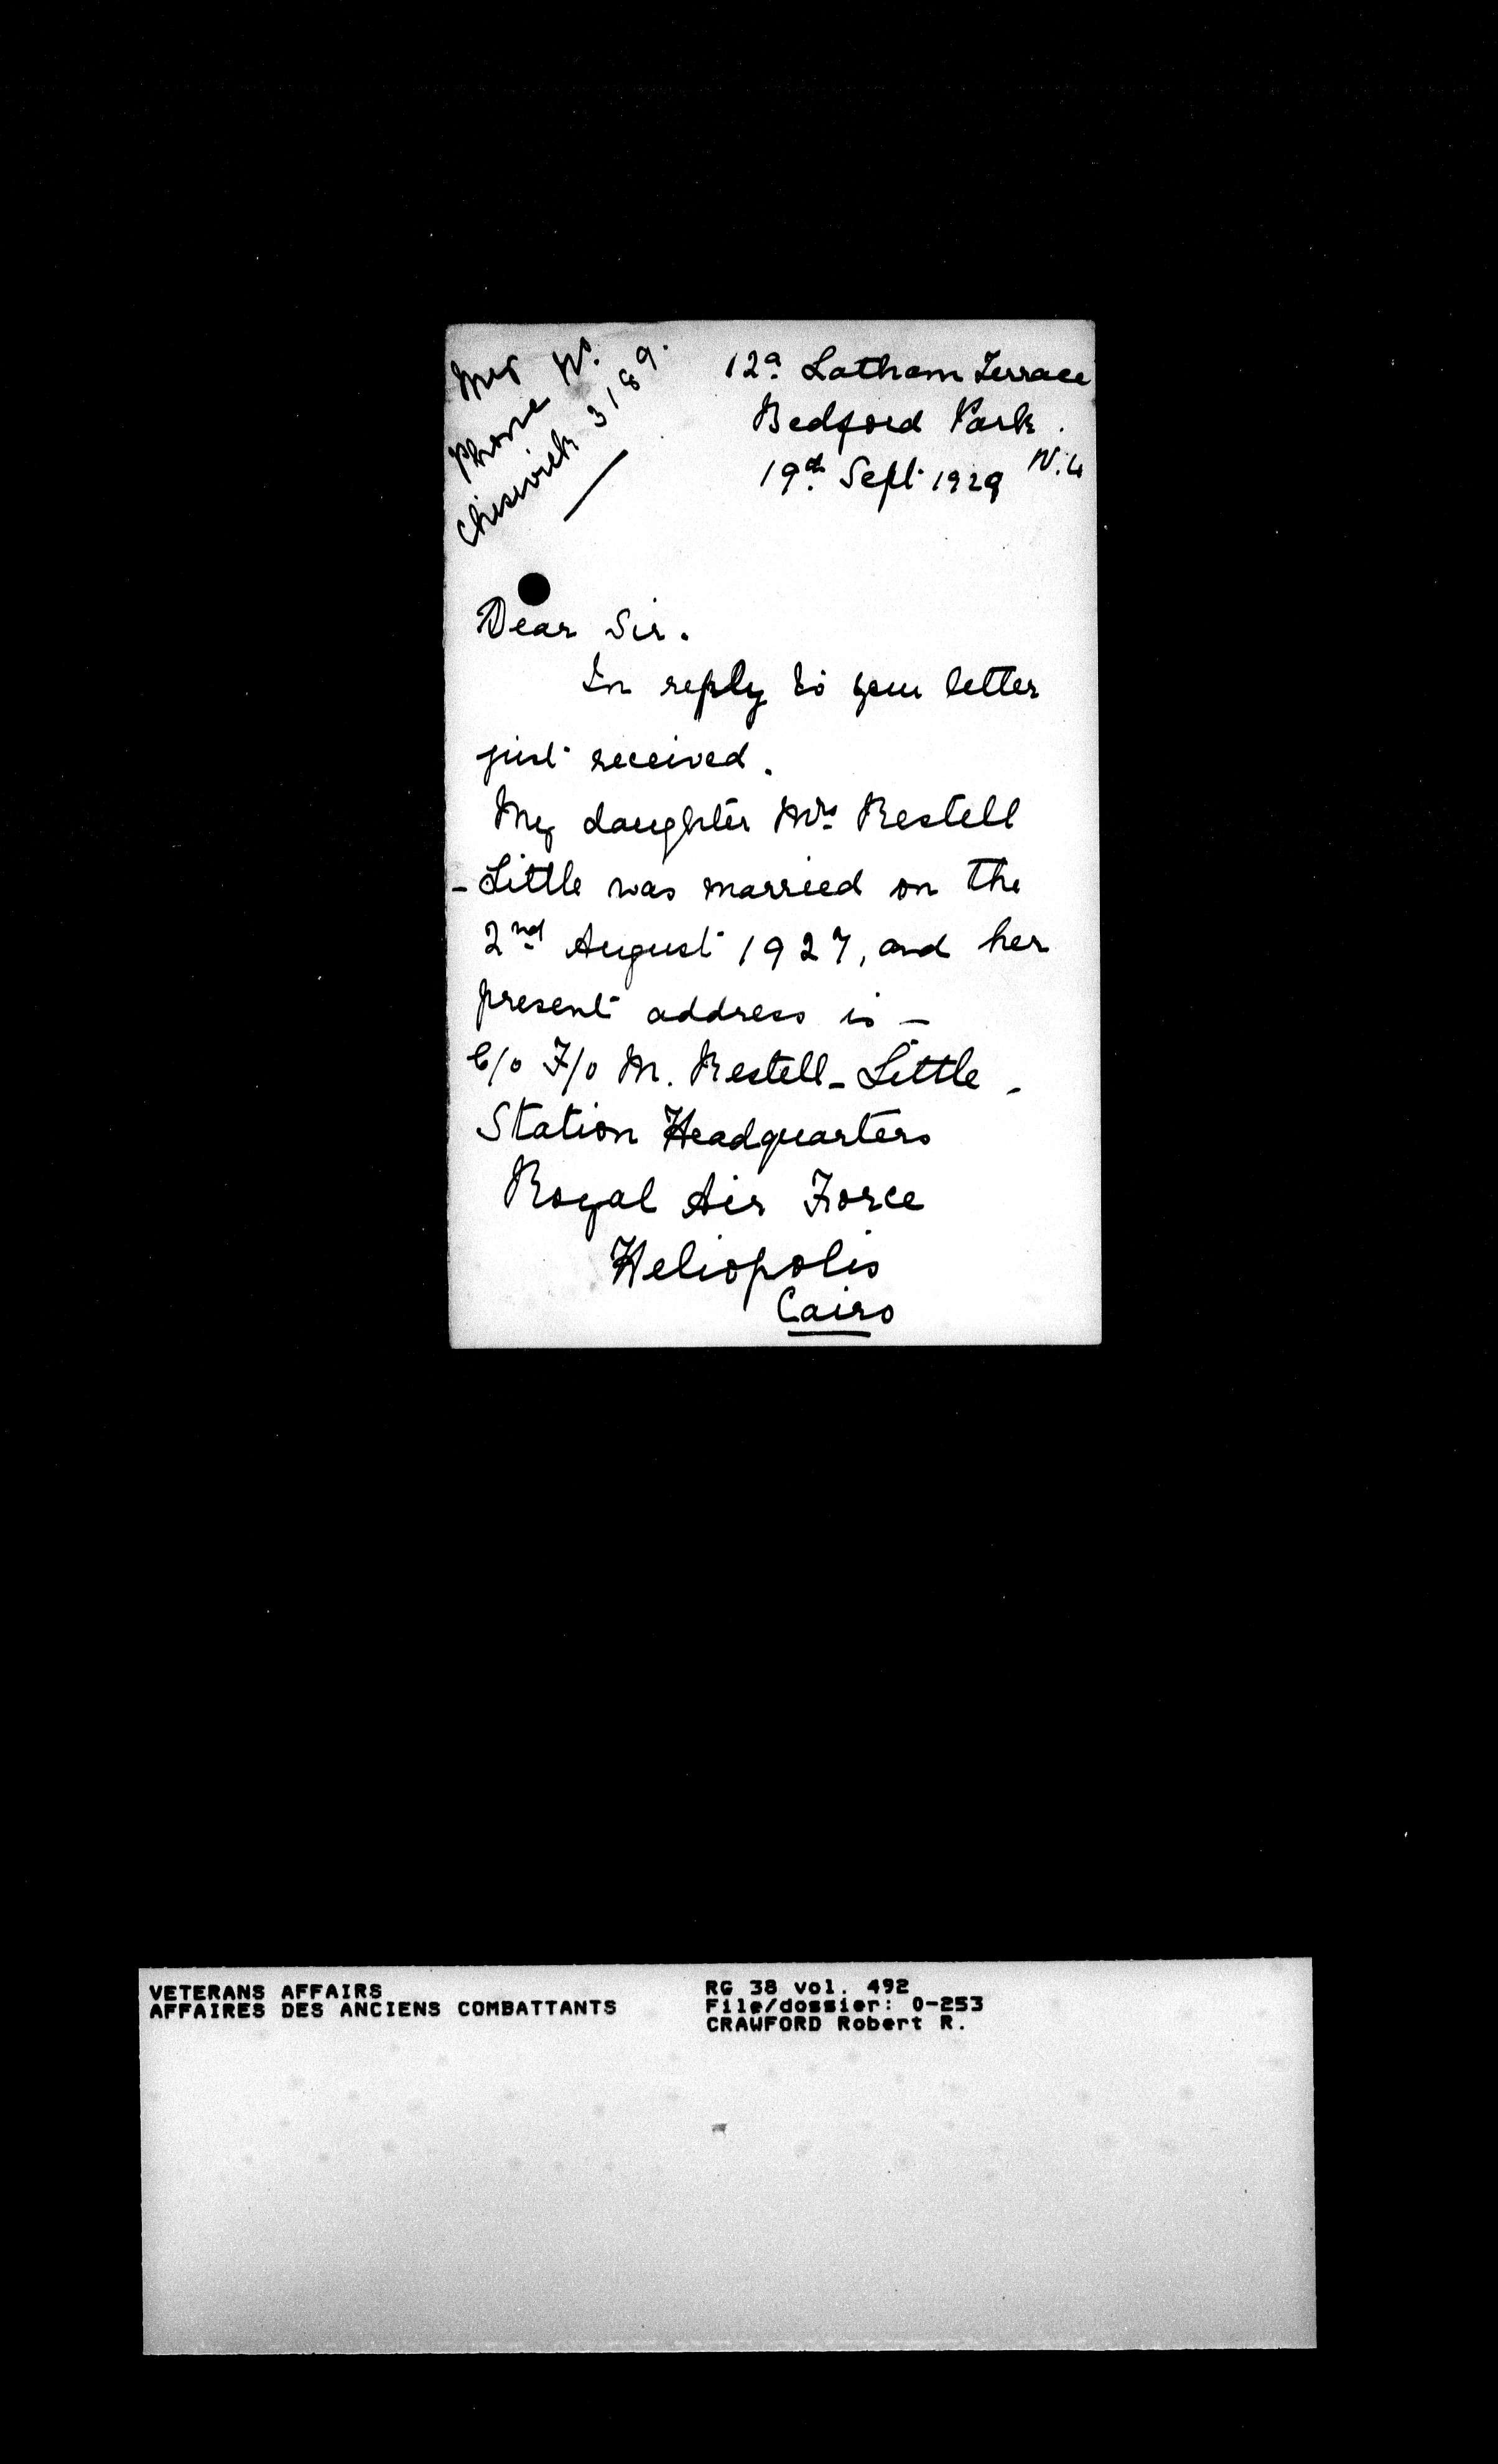 New No.
Phone
Chiswick 3189.
12a. Latham Terrace
Bedford Park.
W.4
19th Sept 1929
Dear Sir.
In reply to your letter
just received.
My daughter Mrs Restell
-Little was married on the
2nd August 1927, and her
present address is -
C/o F/o M. Restell-Little -
Station Headquarters
Royal Air Force
Heliopolis
Cairo
VETERANS AFFAIRS
AFFAIRES DES ANCIENS COMBATTANTS
RG 38 vol. 492
File/dossier: 0-253
CRAWFORD Robert R.